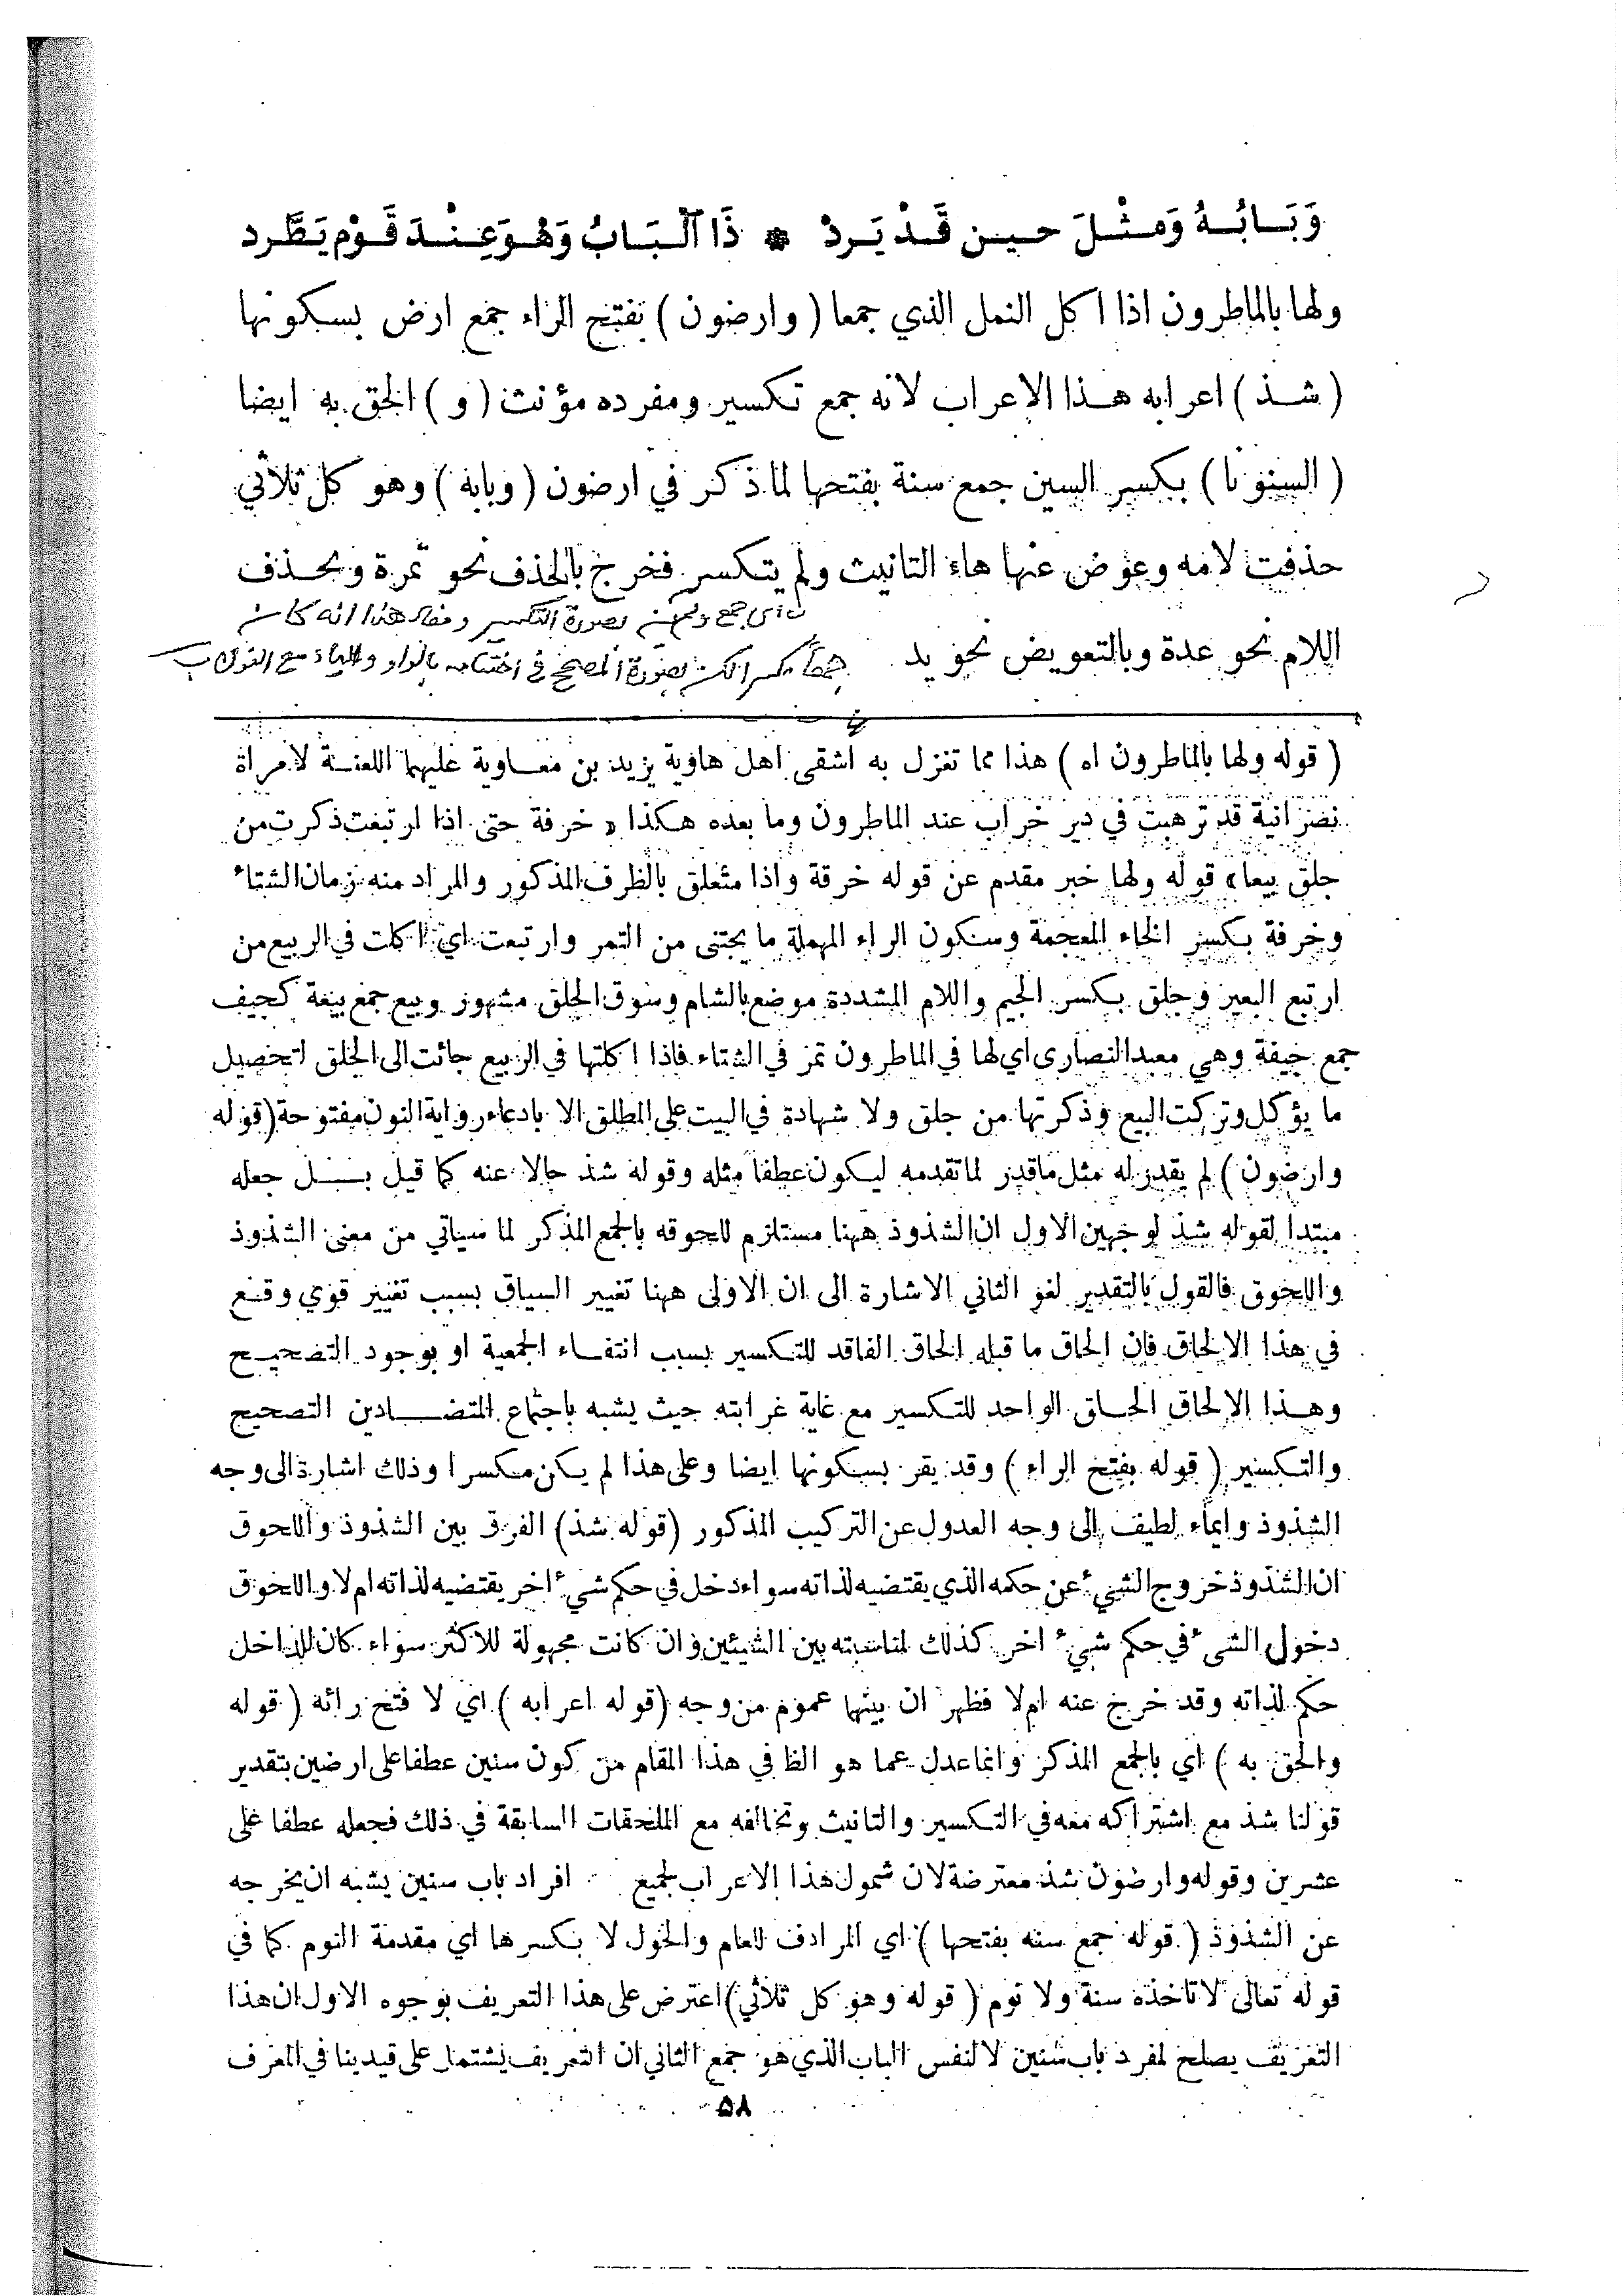 وَبَابُهُ وَمِثْلَ حينٍ قَدْ يَرِدْ * ذَا الْبَابُ وَهُوَ عِنْدَ قَوْمٍ يَطَّرِد
ولها بالماطرون اذا اكل النمل الذي جمعا (وارضون) بفتح الراء جمع ارض بسكونها
(شذ) اعرابه هذا الاعراب لانه جمع تكسير ومفرده مؤنث (و) الحق به ايضا
(السنونا) بكسر السين جمع سنة بفتحها لما ذكر في ارضون (وبابه) وهو كل ثلاثي
حذفت لامه وعوض عنها هاء التانيث ولم يتكسر فخرج بالحذف نحو تمرة وبحذف
بصورة التكسير هذا انه كان
اللام نحو عدة وبالتعويض نحو يد
بصورة المصحح في اختتامه بالواو والياء مع النون
(قوله ولها بالماطرون اه) هذا مما تغزل به اشقى اهل هاوية يزيد بن معاوية عليهما اللعنة لامراة
نصرانية قد ترهبت في دير خراب عند الماطرون وما بعده هكذا « خرفة حتى اذا ارتبعت ذكرت من
جلق بيعا» قوله ولها خبر مقدم عن قوله خرقة واذا متعلق بالظرف المذكور والمراد منه زمان الشتاء
وخرفة بكسر الخاء المعجمة وسكون الراء المهملة ما يجتنى من التمر وارتبعت اي اكلت في الربيع من
ارتبع البعير وجلق بكسر الجيم واللام المشددة موضع بالشام وسوق الجلق مشهور وبيع جمع بيعة كجيف
جمع جيفة وهي معبد النصارى اي لها في الماطرون تمر في الشتاء فاذا اكلتها في الربيع جائت الى الجلق لتحصيل
ما يؤكل وتركت البيع وذكرتها من جلق ولا شهادة في البيت على المطلق الا بادعاء رواية النون مفتوحة (قوله
وارضون) لم يقدر له مثل ما قدر لما تقدمه ليكون عطفا مثله وقوله شذ حالا عنه كما قيل بل جعله
مبتدا لقوله شذ لوجهين الاول ان الشذوذ ههنا مستلزم للحوقه بالجمع المذكر لما سياتي من معنى الشذوذ
واللحوق فالقول بالتقدير لغو الثاني الاشارة الى ان الاولى ههنا تغيير السياق بسبب تغيير قوي وقع
في هذا الالحاق فان الحاق ما قبله الحاق الفاقد للتكسير بسبب انتفاء الجمعية او بوجود التصحيح
وهذا الالحاق الحاق الواجد للتكسير مع غاية غرابته حيث يشبه باجتماع المتضادين التصحيح
والتكسير (قوله بفتح الراء) وقد يقر بسكونها ايضا وعلى هذا لم يكن مكسرا وذلك اشارة الى وجه
الشذوذ وايماء لطيف الى وجه العدول عن التركيب المذكور (قوله شذ) الفرق بين الشذوذ واللحوق
ان الشذوذ خروج الشيء عن حكمه الذي يقتضيه لذاته سواء دخل في حكم شيء اخر يقتضيه لذاته ام لا واللحوق
دخول الشيء في حكم شيء اخر كذلك لمناسبته بين الشيئين وان كانت مجهولة للاكثر سواء كان للداخل
حكم لذاته وقد خرج عنه ام لا فظهر ان بينهما عموم من وجه (قوله اعرابه) اي لا فتح رائه (قوله
والحق به) اي بالجمع المذكر وانما عدل عما هو الظا في هذا المقام من كون سنين عطفا على ارضين بتقدير
قولنا شذ مع اشتراكه معه في التكسير والتانيث وتخالفه مع الملحقات السابقة في ذلك فجعله عطفا على
عشرين وقوله وارضون شذ معترضة لان شمول هذا الاعراب لجميع افراد باب سنين يشبه ان يخرجه
عن الشذوذ (قوله جمع سنه بفتحها) اي المرادف للعام والحول لا بكسرها اي مقدمة النوم كما في
قوله تعالى لا تاخذه سنة ولا نوم (قوله وهو كل ثلاثي) اعترض على هذا التعريف بوجوه الاول ان هذا
التعريف يصلح لمفرد باب سنين لا لنفس الباب الذي هو جمع الثاني ان التعريف يشتمل على قيد ينافي المعرف
٥٨